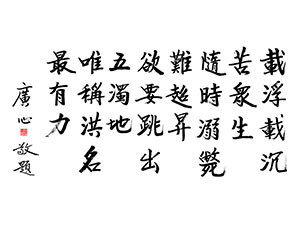 載浮載沉
苦衆生
隨時溺斃
難超昇
欲要跳出
五濁地
唯稱洪名
最有力
廣心敬題